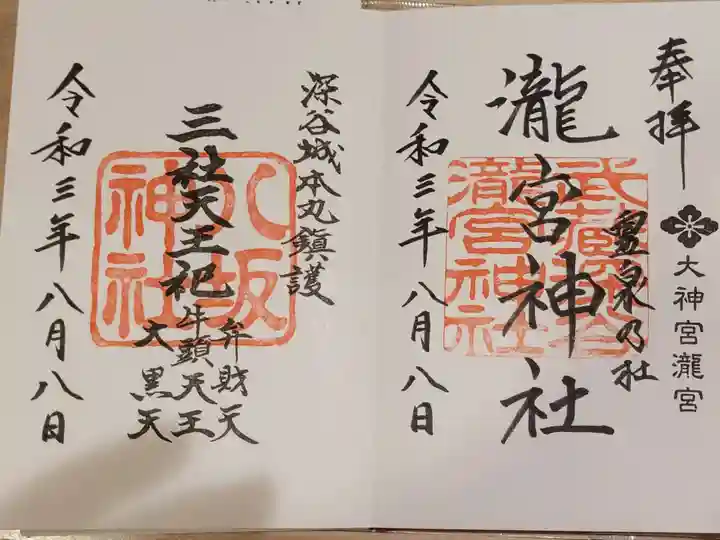 奉拝
大神宮瀧宮
霊泉乃社
瀧宮神社
武蔵深谷
瀧宮神社
令和三年八月八日
深谷城本丸鎮護
三社天王祀
弁財天
牛頭天王
大黒天
八坂
神社
令和三年八月八日